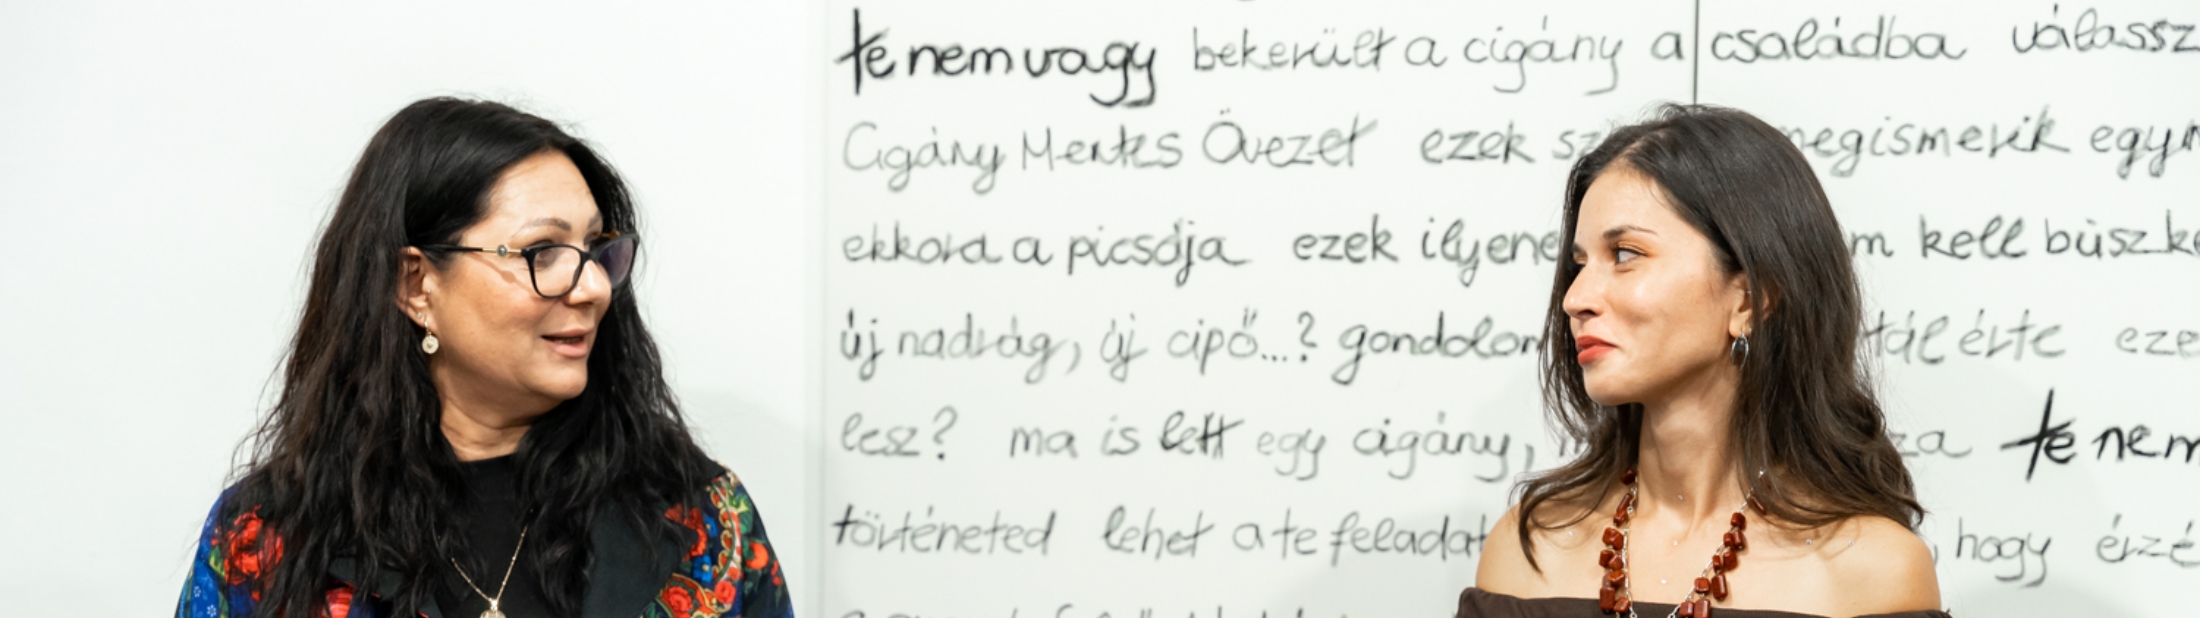 te nem vagy bekerült a cigány a családba válassz
Cigány Mentes Övezet ezek sz megismerik egym
ekkora a picsája ezek ilyene m kell büszke
új nadrág, új cipő...? gondolom tál érte eze
lesz? ma is lett egy cigány, za te nem
történeted lehet a te feladat , hogy érzé